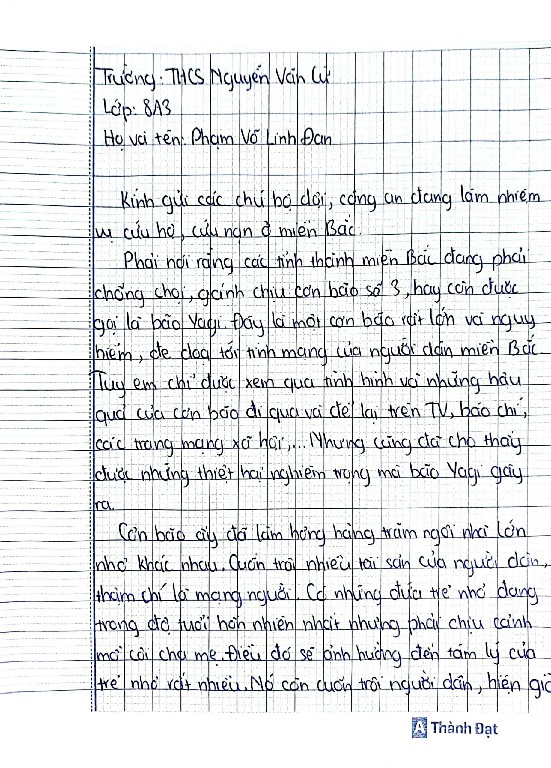 Trường: THCS Nguyễn Văn Cừ
Lớp: 8A3
Họ và tên: Phạm Võ Linh Đan
Kính gửi các chú bộ đội, công an đang làm nhiệm
vụ cứu hộ, cứu nạn ở miền Bắc.
Phải nói rằng các tỉnh thành miền Bắc đang phải
chống chọi, gánh chịu cơn bão số 3, hay còn được
gọi là bão Yagi. Đây là một cơn bão rất lớn và nguy
hiểm, đe dọa tới tính mạng của người dân miền Bắc.
Tuy em chỉ được xem qua tình hình và những hậu
quả của cơn bão đi qua và để lại trên TV, báo chí,
các trang mạng xã hội,... Nhưng cũng đã cho thấy
được những thiệt hại nghiêm trọng mà bão Yagi gây
ra.
Cơn bão ấy đã làm hỏng hàng trăm ngôi nhà lớn
nhỏ khác nhau. Cuốn trôi nhiều tài sản của người dân,
thậm chí là mạng người. Có những đứa trẻ nhỏ đang
trong độ tuổi hồn nhiên nhất nhưng phải chịu cảnh
mồ côi cha mẹ. Điều đó sẽ ảnh hưởng đến tâm lý của
trẻ nhỏ rất nhiều. Nó còn cuốn trôi người dân, hiện giờ
Thành Đạt